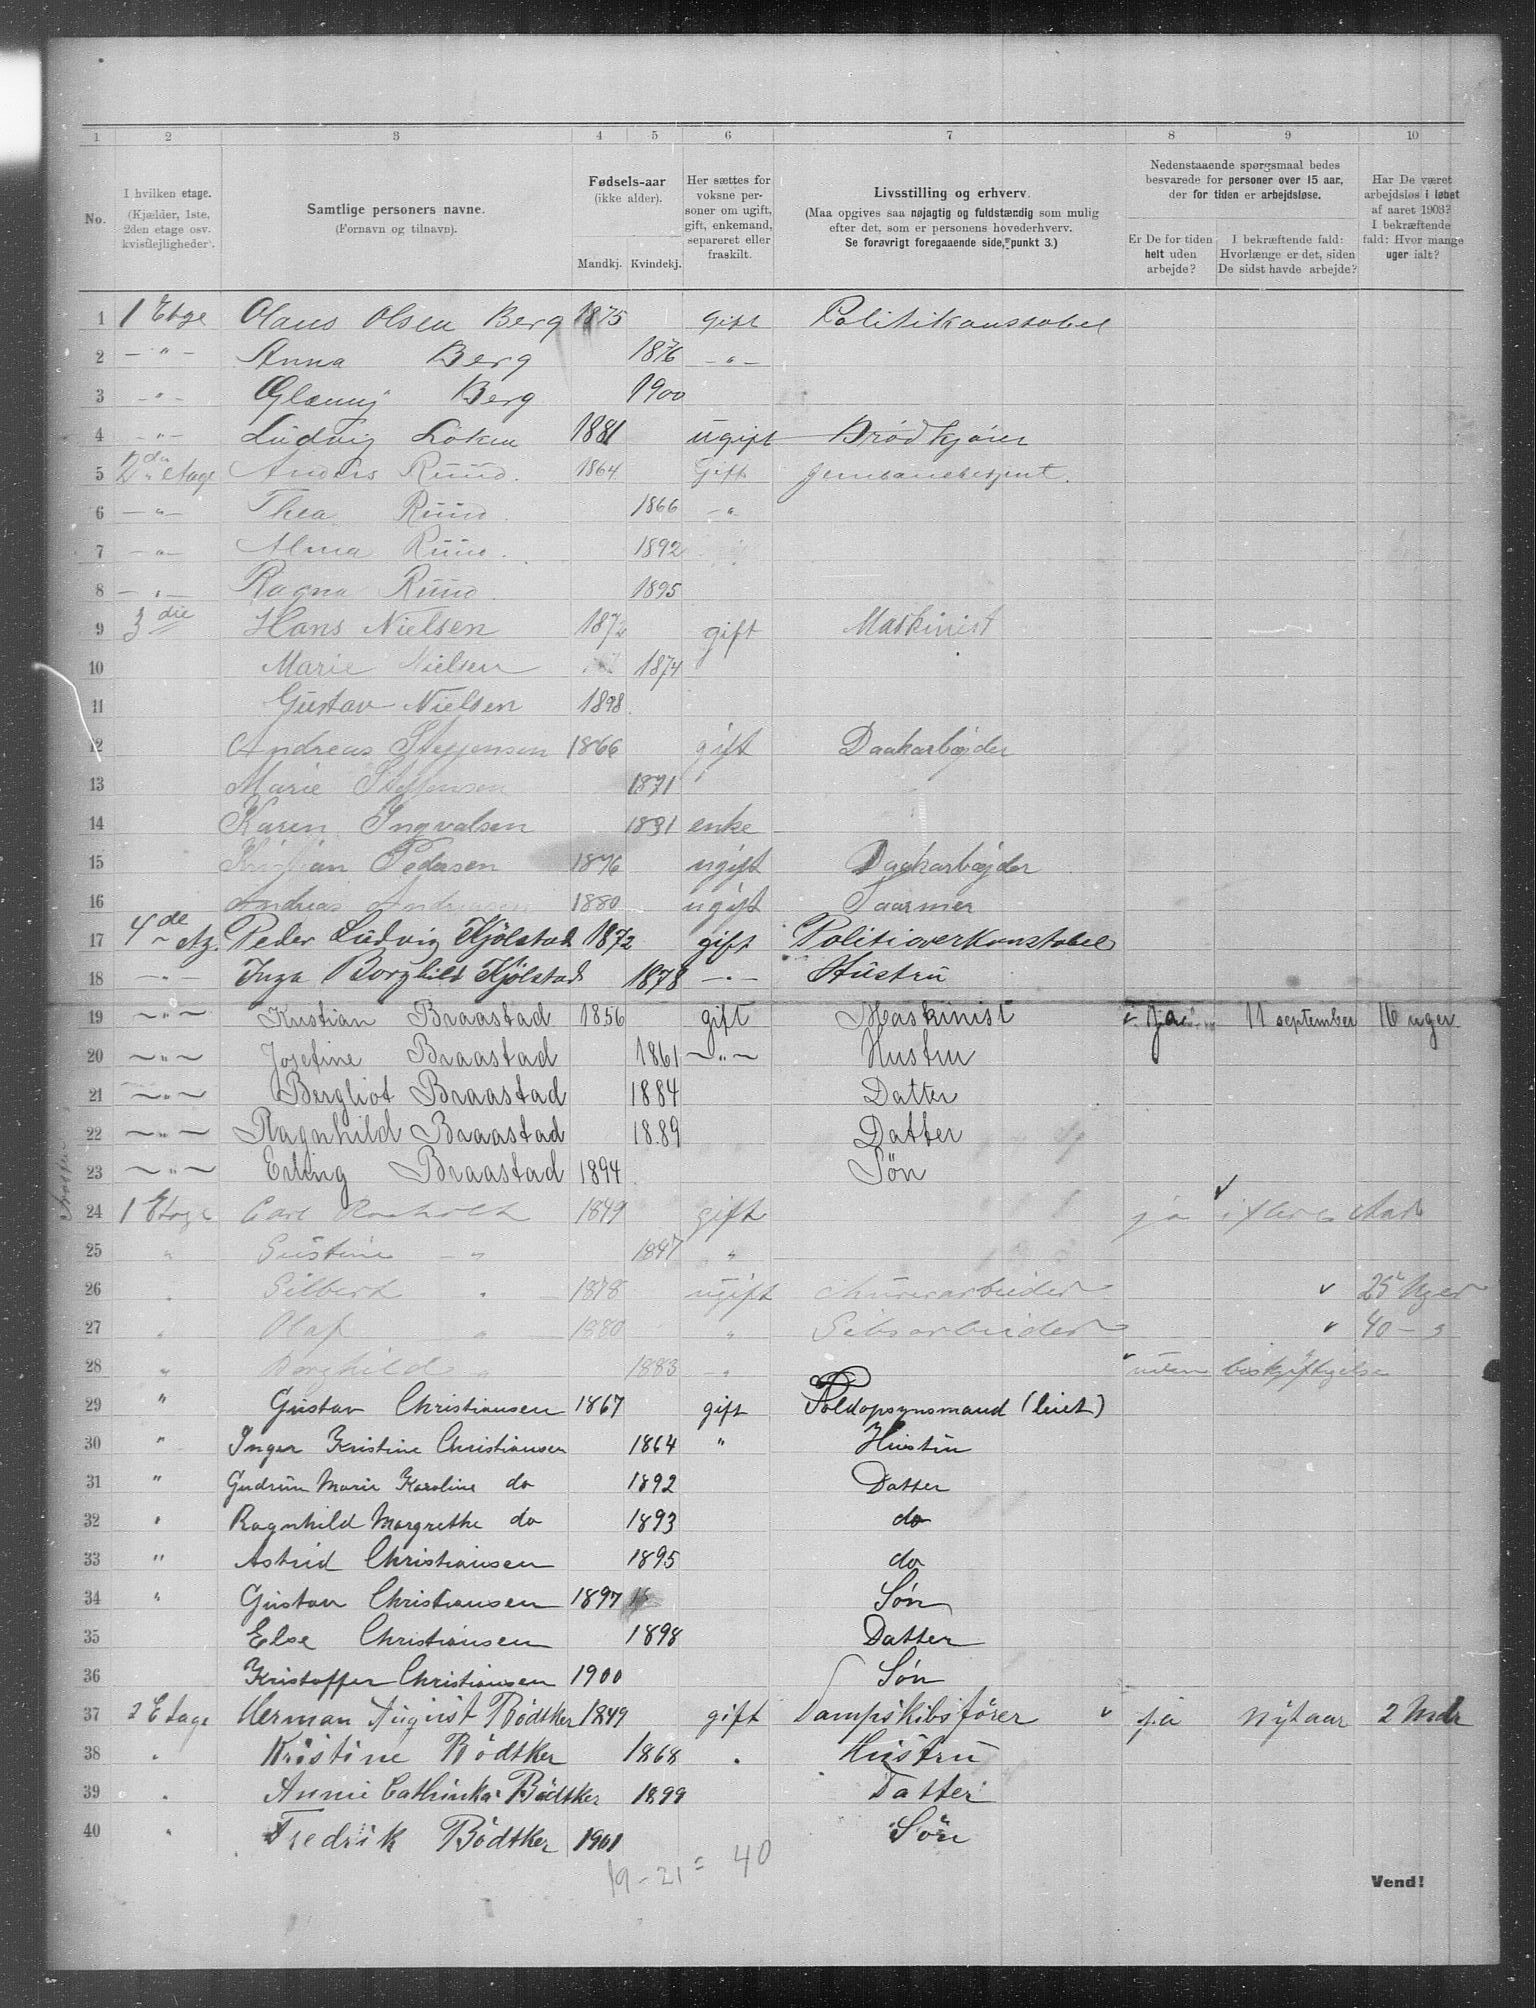 1 2 3 4 5 6 7 8 9 10
No.
I hvilken etage. (Kjælder, 1ste, 2den etage osv. kvistlejligheder).
Samtlige personers navne. (Fornavn og tilnavn).
Fødsels-aar (ikke alder). Mandkj. Kvindekj.
Her sættes for voksne personer om ugift, gift, enkemand, separeret eller fraskilt.
Livsstilling og erhverv. (Maa opgives saa nøjagtig og fuldstændig som mulig efter det, som er personens hovederhverv. Se forøvrigt foregaaende side, punkt 3.)
Nedenstaaende spørgsmaal bedes besvarede for personer over 15 aar, der for tiden er arbejdsløse.
Er De for tiden helt uden arbejde?
I bekræftende fald: Hvorlænge er det, siden De sidst havde arbejde?
Har De været arbejdsløs i løbet af aaret 1903? I bekræftende fald: Hvor mange uger ialt?
1 1 Etge Olaus Olsen Berg 1875 gift Politikonstabel
2 — " — Anna Berg 1876 — " —
3 — " — Berg 1900
4 — " — Ludvig Löken 1881 ugift Brödkjører
5 2den etage Anders Ruud. 1864 Gift
6 — " — Thea Ruud. 1866 — "
7 — " — Alma Ruud. 1892
8 — " — Ragna Ruud. 1895
9 3die Hans Nielsen 1872 gift Maskinist
10 Marie Nielsen 1874
11 Gustav Nielsen 1898
12 Andreas Steffensen 1866 gift Daakarbøjder
13 Marie Steffensen 1871
14 Karen Ingvalsen 1831 enke
15 Kristian Pedersen 1876 ugift Daakarbøjder
16 Andreas Andreasen 1880 ugift
17 4de Etg. Peder Ludvig Kjölstad 1872 gift Politioverkonstabel
18 — " — Inga Borghild Kjölstad 1878 — " — Hustru
19 — " — Kristian Braastad 1856 gift Maskinist ja 11 september 16 uger
20 — " — Josefine Braastad 1861 — " — Hustru
21 — " — Bergliot Braastad 1884 Datter
22 — " — Ragnhild Braastad 1889 Datter
23 — " — Erling Braastad 1894 Søn
24 1 Etage Carl 1849 gift ja
25 " — " 1847 "
26 " " 1878 ugift Murerarbeider 25 Uger
27 " Olaf " 1880 " Gibsarbeider 40 — "
28 " Borghild " 1883 — " uden beskjæftigelse
29 " Gustav Christiansen 1867 gift Toldopsynsmand (leiet)
30 " Inger Kristine Christiansen 1864 " Hustru
31 " Gudrun Marie Karoline do 1892 Datter
32 " Ragnhild Margrethe do 1893 do
33 " Astrid Christiansen 1895 do
34 " Gustav Christiansen 1897 Søn
35 Else Christiansen 1898 Datter
36 Kristoffer Christiansen 1900 Søn
37 2 Etage Herman August Bödtker 1849 gift Dampskibsfører ja nytaar 2 Mdr
38 " Kristine Bödtker 1868 " Hustru
39 " Annie Cathinka Bödtker 1899 Datter
40 " Fredrik Bödtker 1901 Søn
19 - 21 = 40
Vend!